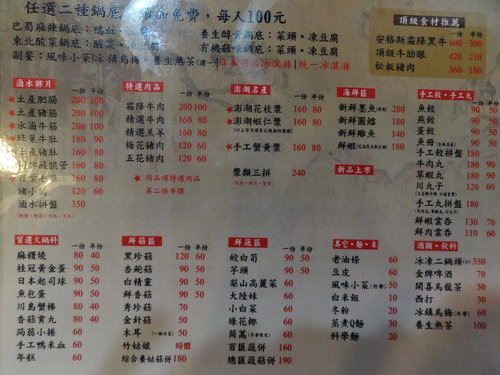 任選二種鍋底,添加免費,每人100元
巴蜀麻辣鍋底:鴨血
東北酸菜鍋底:酸菜
養生醇骨鍋底:菜頭、凍豆腐
有機菇味鍋底:菜頭、凍豆腐
副餐:風味小菜|冰鎮烏梅、養生熱茶(選一)
統一冰淇淋
頂級食材推薦
安格斯霜降黑牛 600 300
頂級牛肋眼 420 210
松板豬肉 360 180
滷水臊片
一份 半份
土產肥腸 200 100
土產豬筋
水滷牛筋
蜂巢牛肚 160 80
土產豬肚 160 80
豬小肚 120 60
滷水拼盤 350
特選肉品
一份 半份
霜降牛肉 200 100
精選牛肉 160 80
精選羔羊 160 80
梅花豬肉 120 60
五花豬肉 120 60
同品項特選肉品
第二份半價
澎湖名產
一份 半份
澎湖花枝漿 160 80
澎湖蝦仁漿 160 80
手工蟹黃漿 160 80
漿類三拼 240
海鮮區
一份
新鮮墨魚 280
新鮮團鱈 180
新鮮雕魚 140
新鮮蝦 180
新品上市
手工餃、手工丸
一份 半份
魚餃 90 50
燕餃 90 50
蛋餃 90 50
魚冊
手工餃拼盤 180
牛肉丸 90 50
草蝦丸 90 50
川丸子 120 60
手工丸拼盤 180
鮮蝦雲吞 130 70
鮮肉雲吞 110 60
實選火鍋料
一份 半份
麻糬燒 80 40
桂冠黃金蛋 90 50
日本起司球 90 50
魚包蛋 90 50
川島蟹棒 90 50
香菇貢丸 80 40
蒟蒻小捲 60
手工鴨米血 60
年糕 60
鮮菇區
一份 半份
黑珍菇 120 60
杏鮑菇 90 50
白精靈 90 50
鮮香菇 90 50
秀珍菇 70
金針菇 50
木耳 50
竹笙娘娘 時價
綜合養菇菇併 180
鮮蔬區
一份 半份
筊白筍 90 50
芋頭 90 50
梨山高麗菜 60
大陸妹 60
小白菜 60
綠花椰 60
茼蒿 60
百匯蔬併 180
總匯蔬菇併 190
其它、麵、米
一份
老油條 60
豆皮 60
風味小菜 30
白米飯 10
冬粉 20
蒸煮Q麵 30
科學麵 20
酒類、飲料
一份
冰凍二鍋頭 350
金牌啤酒 70
開喜烏龍茶 50
西打 30
冰鎮烏梅 60
養生熱茶 60